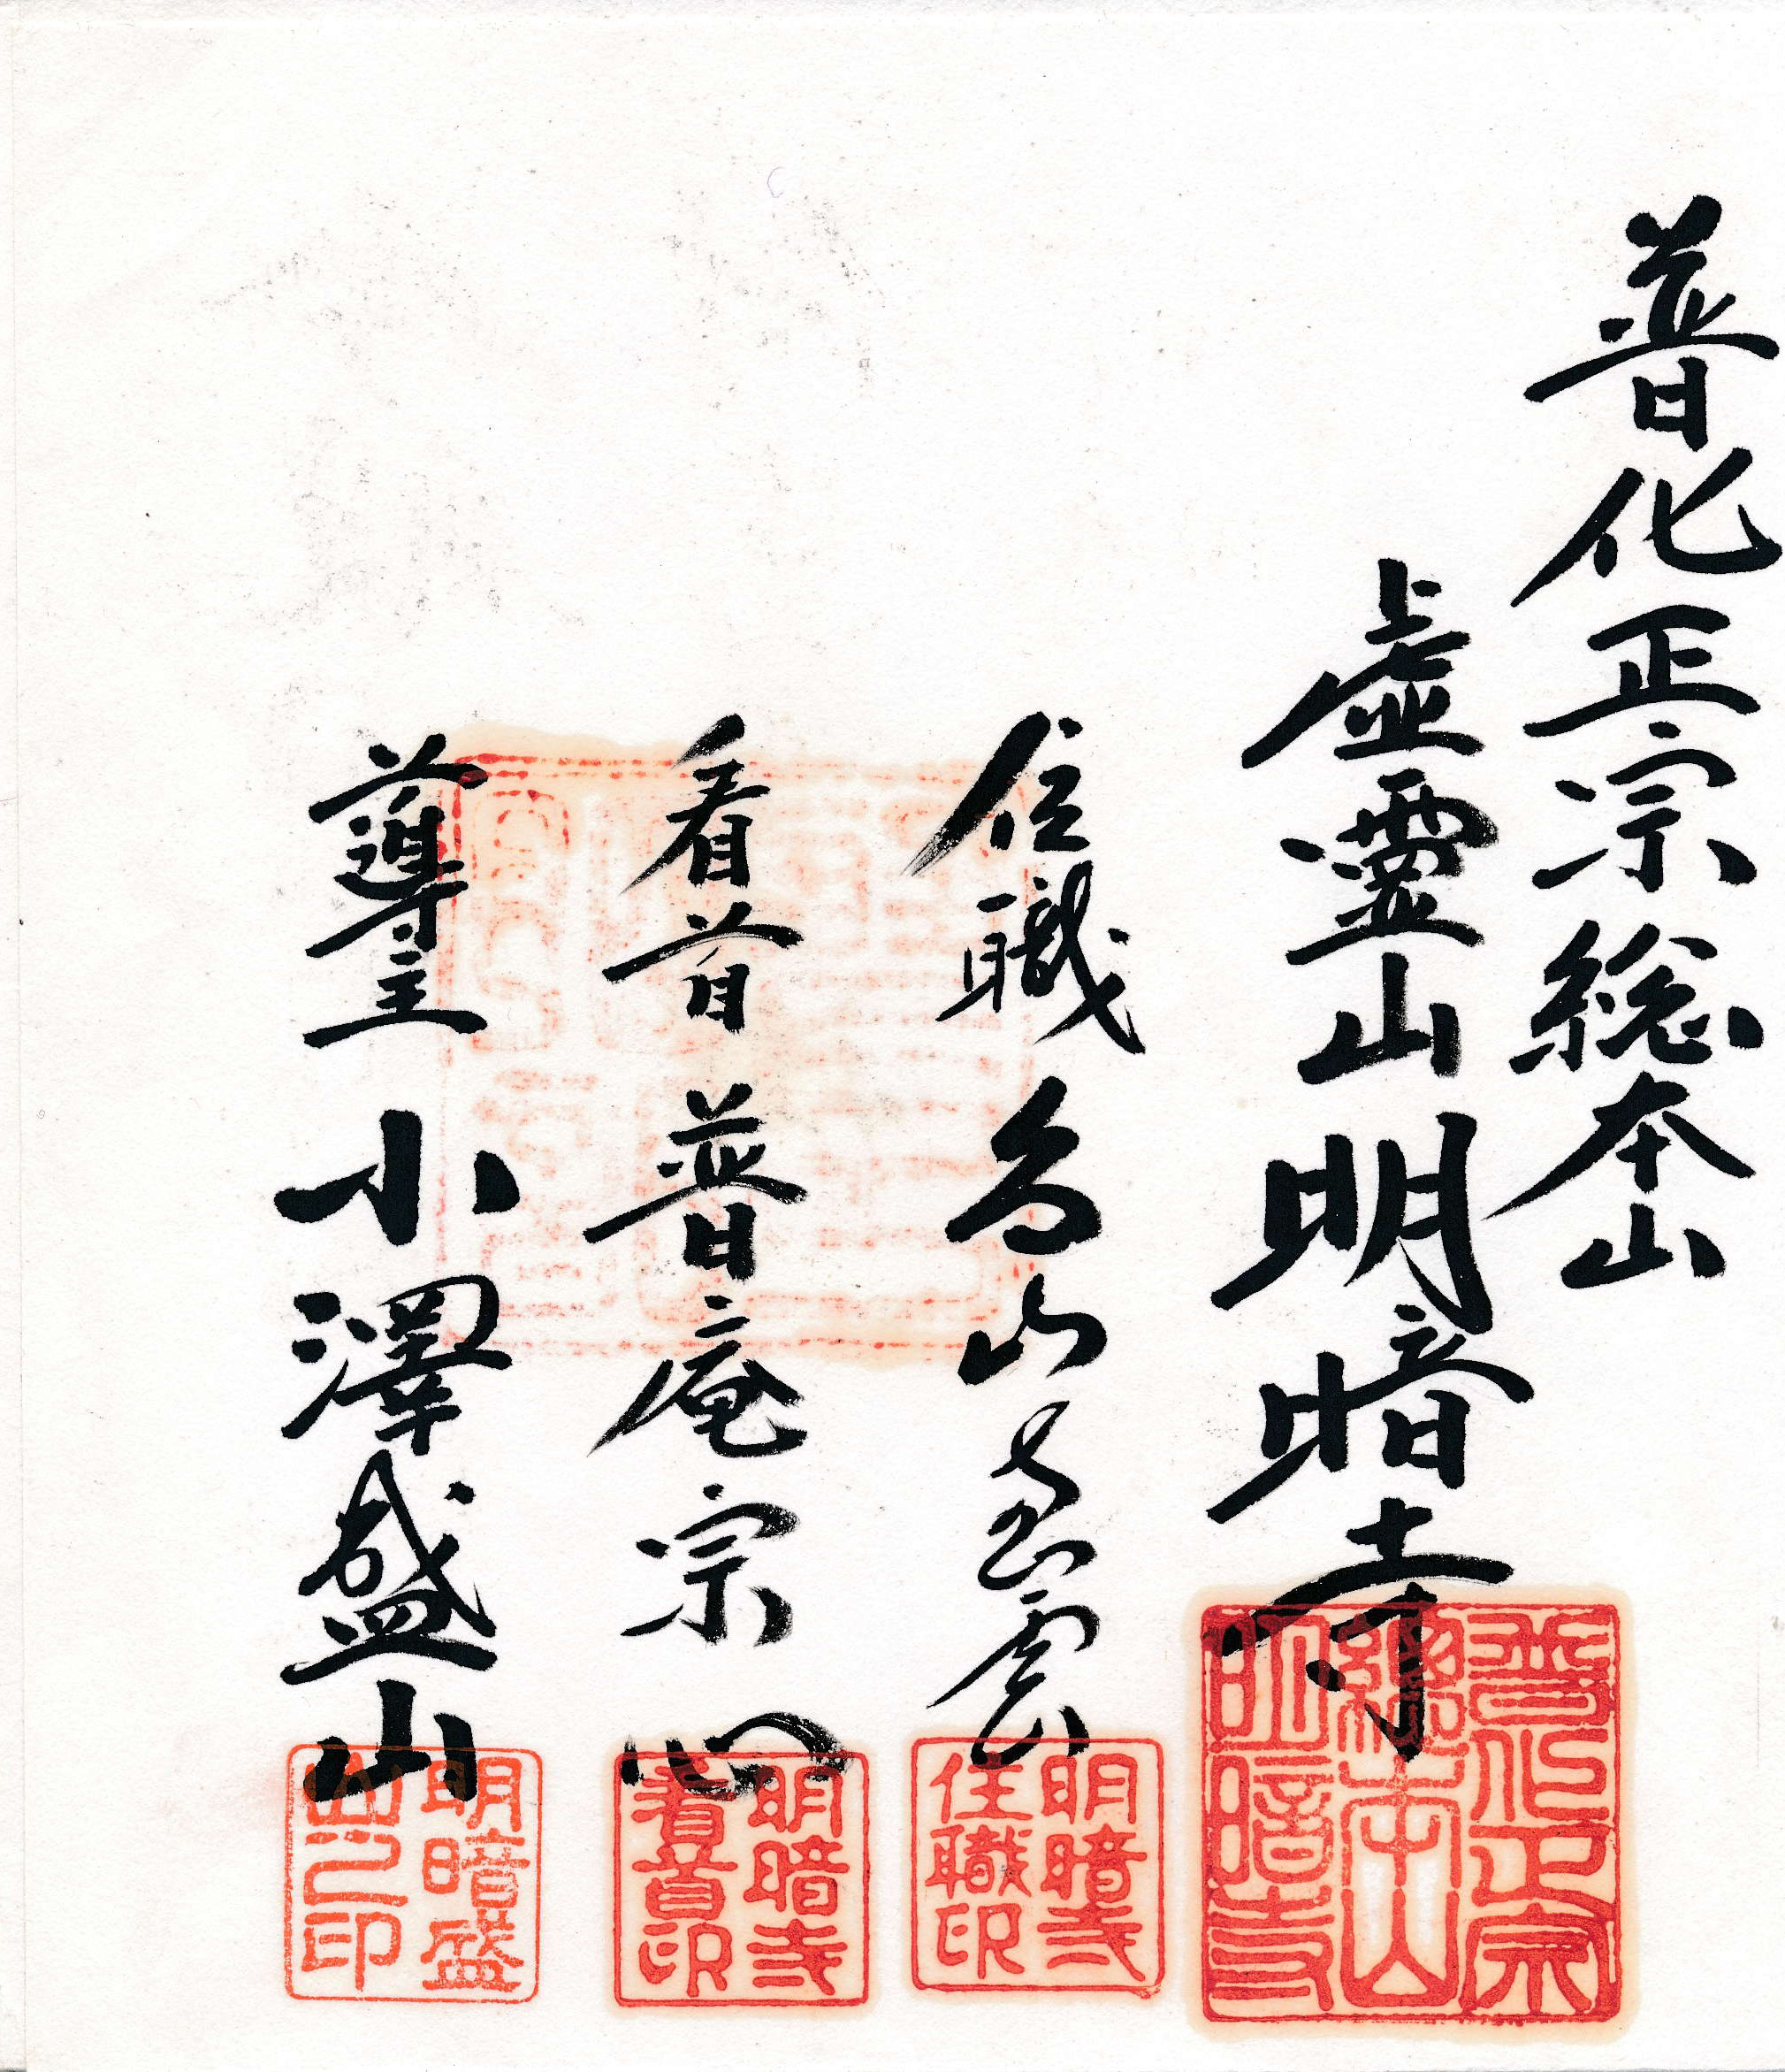 普化正宗総本山
虚霊山明暗寺
住職 山 雲
看首 普庵宗心
導主 小澤盛山
普化正宗
總本山
明暗寺
明暗寺
住職印
明暗寺
看首印
明暗盛
山之印